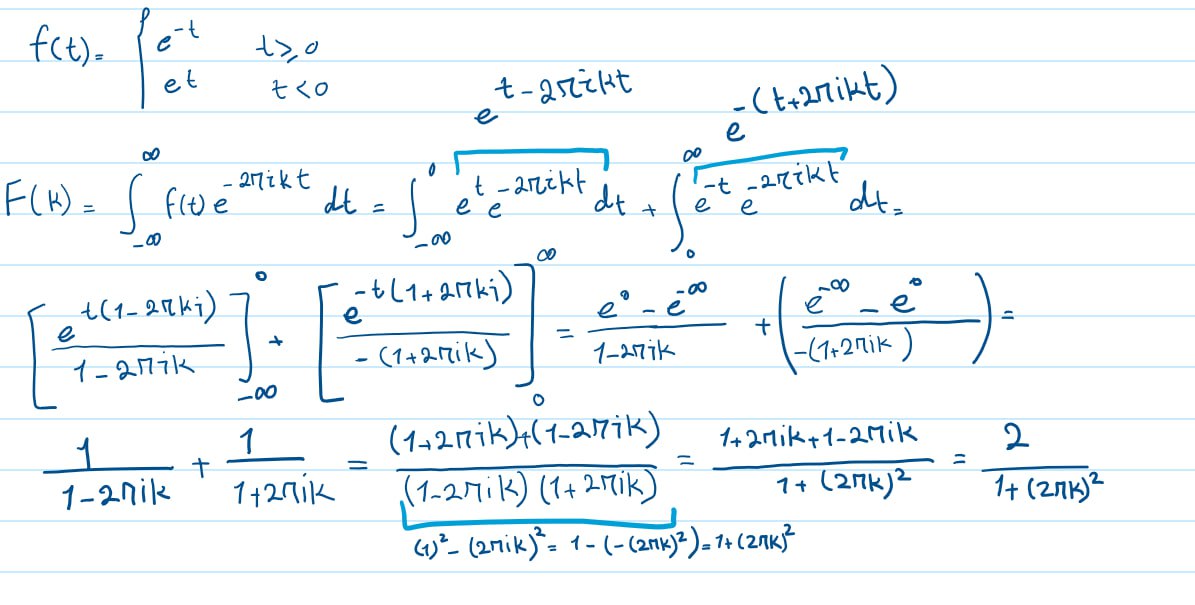 f(t)= { e^{-t} t≥0
e^{t} t<0
e^{t-2πikt} e^{-(t+2πikt)}
F(k) = ∫_{-∞}^{∞} f(t) e^{-2πikt} dt = ∫_{-∞}^{0} e^{t} e^{-2πikt} dt + ∫_{0}^{∞} e^{-t} e^{-2πikt} dt =
[ e^{t(1-2πki)} / (1-2πik) ]_{-∞}^{0} + [ e^{-t(1+2πki)} / -(1+2πik) ]_{0}^{∞} = (e^{0} - e^{-∞}) / (1-2πik) + ( (e^{-∞} - e^{0}) / -(1+2πik) ) =
1 / (1-2πik) + 1 / (1+2πik) = ((1+2πik)+(1-2πik)) / ((1-2πik)(1+2πik)) = (1+2πik+1-2πik) / (1+(2πk)^2) = 2 / (1+(2πk)^2)
(1)^2 - (2πik)^2 = 1-(-(2πk)^2) = 1+(2πk)^2